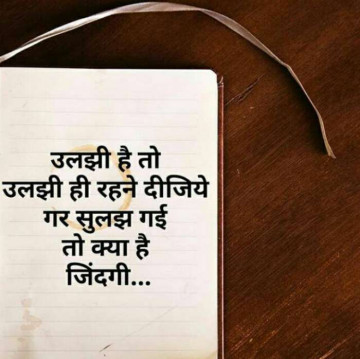 उलझी है तो
उलझी ही रहने दीजिये
गर सुलझ गई
तो क्या है
जिंदगी...